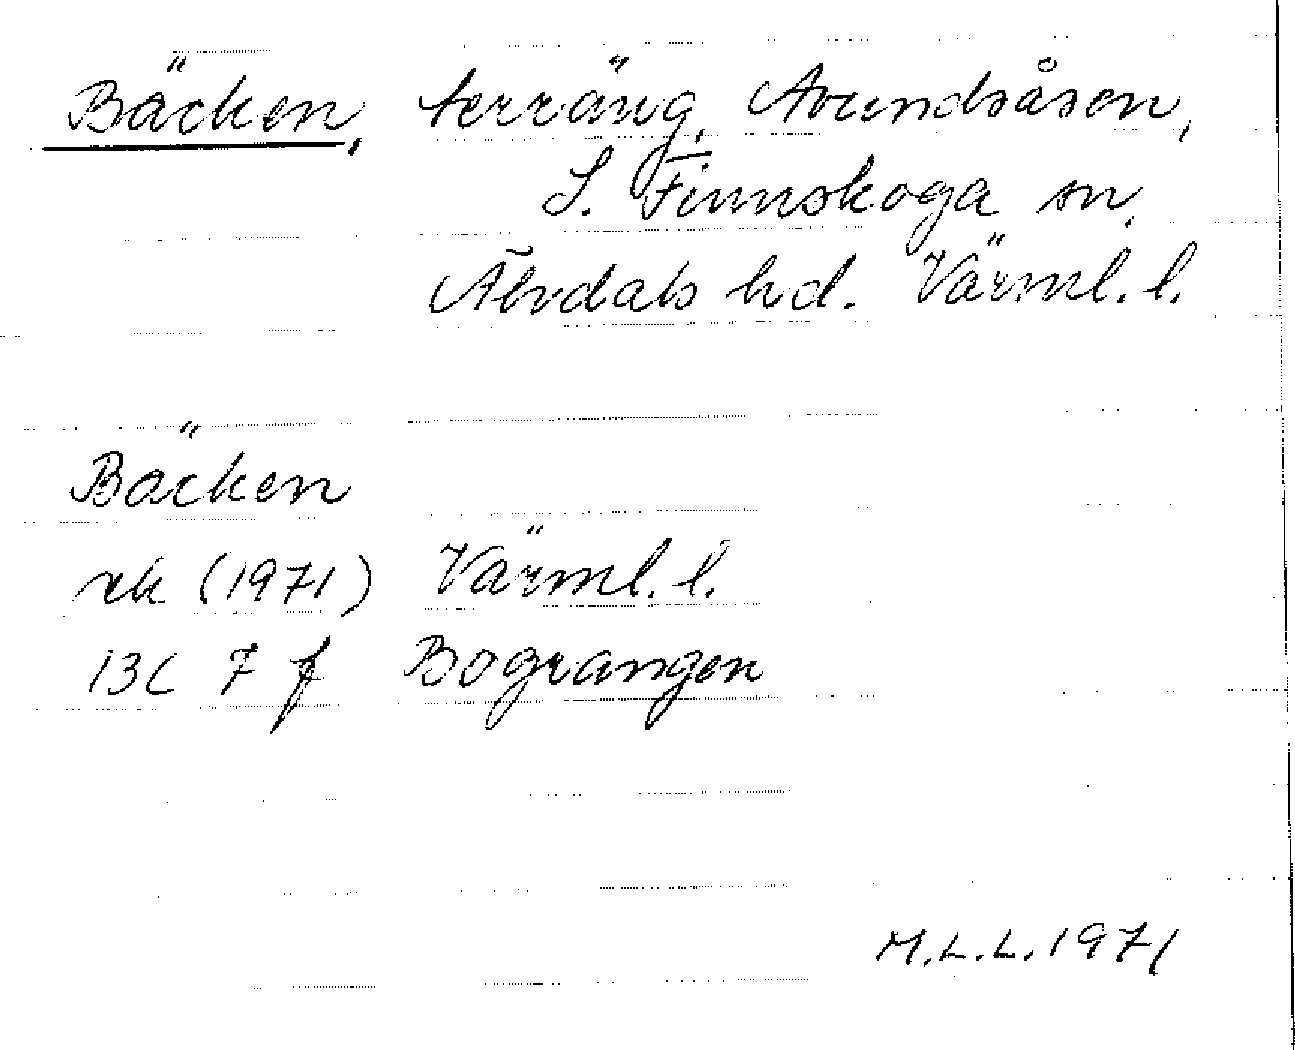 Bäcken, terräng, Avundsåsen,
S. Finnskoga sn,
Älvdals hd. Värml. l.
Bäcken
rk (1971) Värml. l.
13C 7 f Bograngen
M.L.L. 1971